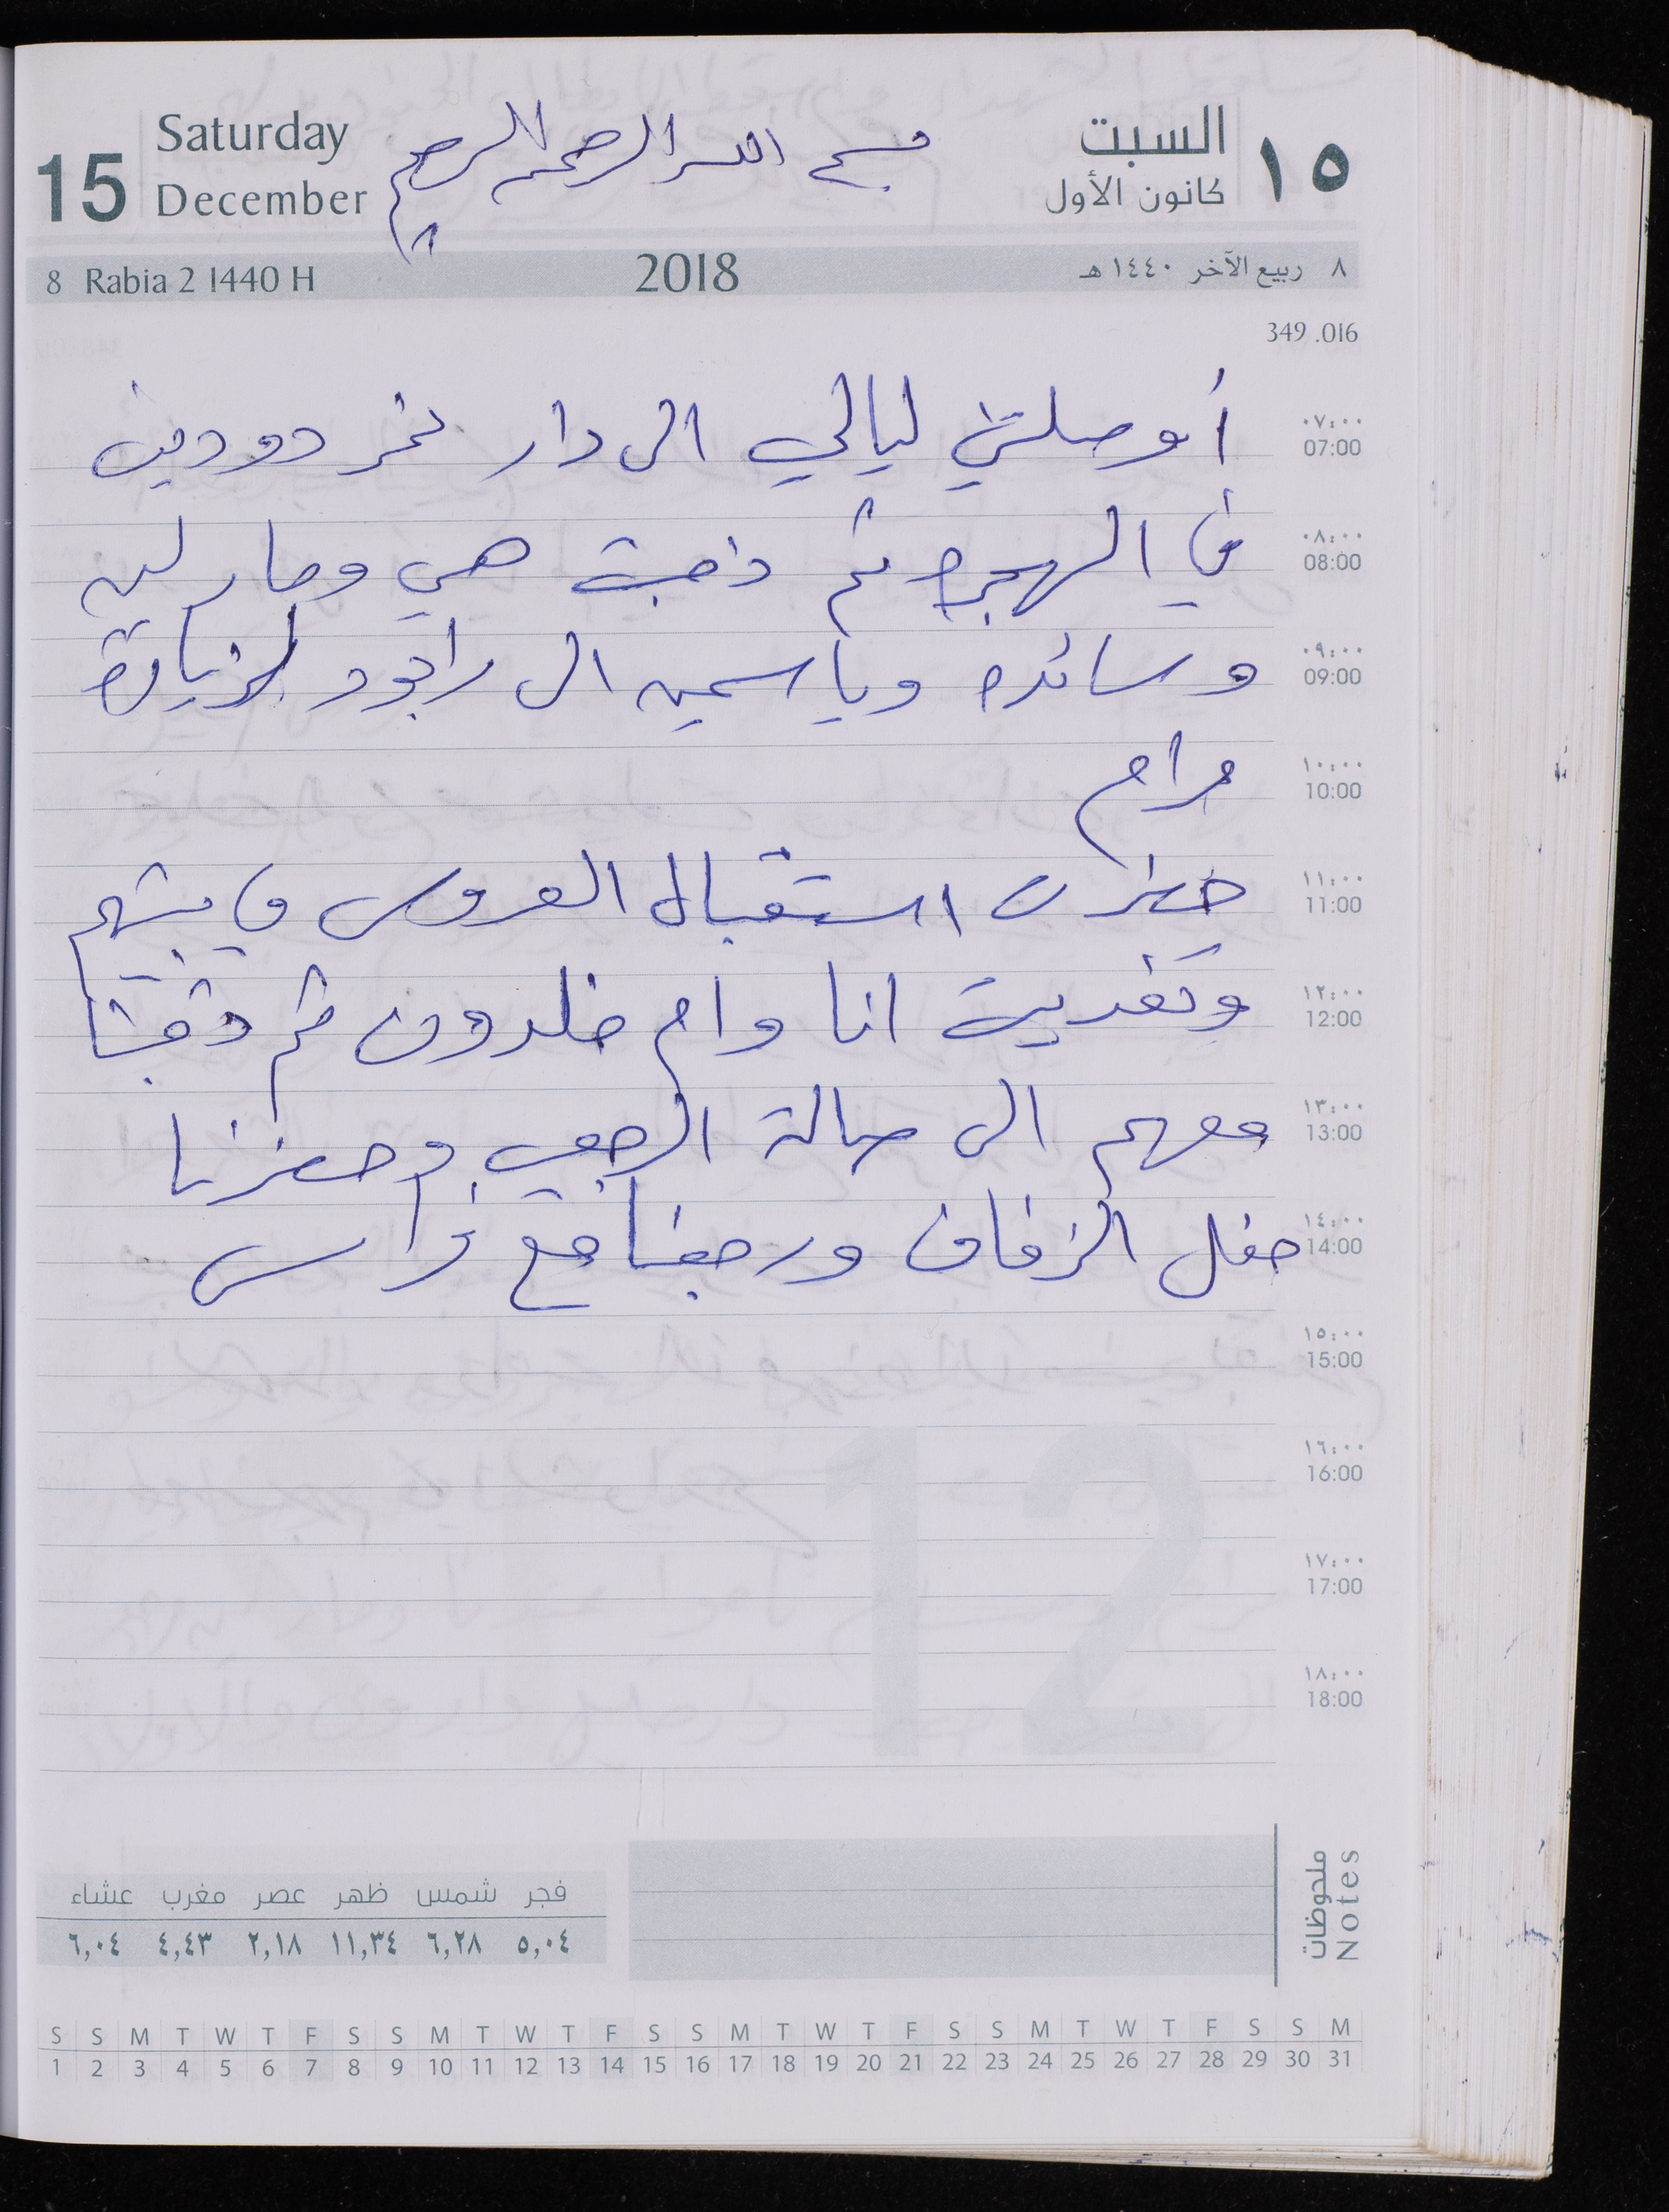 15
Saturday
December
بسم الله الرحمن الرحيم
السبت
كانون الأول
١٥
8 Rabia 2 1440 H
2018
٨ ربيع الآخر ١٤٤٠ هـ
349 .016
٠٧:٠٠
07:00
أوصلتني ليالي الى دار نمر دودين
٠٨:٠٠
08:00
في الهجرة ثم ذهبت هي ومارلين
٠٩:٠٠
09:00
وسائده وياسمين الى رابود لزيارة
١٠:٠٠
10:00
مرام
١١:٠٠
11:00
حضرت استقبال العروس في بيتهم
١٢:٠٠
12:00
وتغديت انا وام خلدون ثم ذهبنا
١٣:٠٠
13:00
معهم الى صالة الرجعي وحضرنا
١٤:٠٠
14:00
حفل الزفاف ورجعنا مع فراس
١٥:٠٠
15:00
١٦:٠٠
16:00
١٧:٠٠
17:00
١٨:٠٠
18:00
12
ملحوظات
Notes
فجر شمس ظهر عصر مغرب عشاء
٥,٠٤ ٦,٢٨ ١١,٣٤ ٢,١٨ ٤,٤٣ ٦,٠٤
S S M T W T F S S M T W T F S S M T W T F S S M T W T F S S M
1 2 3 4 5 6 7 8 9 10 11 12 13 14 15 16 17 18 19 20 21 22 23 24 25 26 27 28 29 30 31